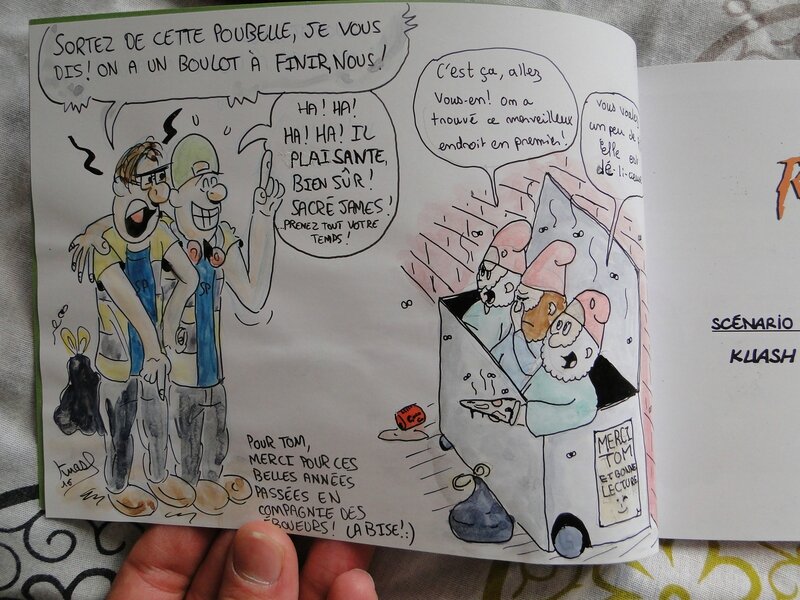 SORTEZ DE CETTE POUBELLE, JE VOUS
DIS! ON A UN BOULOT À FINIR, NOUS!
HA! HA!
HA! HA! IL
PLAISANTE,
BIEN SÛR!
SACRÉ JAMES!
PRENEZ TOUT VOTRE
TEMPS!
C'est ça, allez
vous-en! on a
trouvé ce merveilleux
endroit en premier!
vous voulez
un peu de
elle est
dé-li-cieuse
SP
SP
POUR TOM,
MERCI POUR CES
BELLES ANNÉES
PASSÉES EN
COMPAGNIE DES
ÉBOUEURS! LA BISE! :)
MERCI
TOM
ET BONNE
LECTURE
SCÉNARIO
KUASH